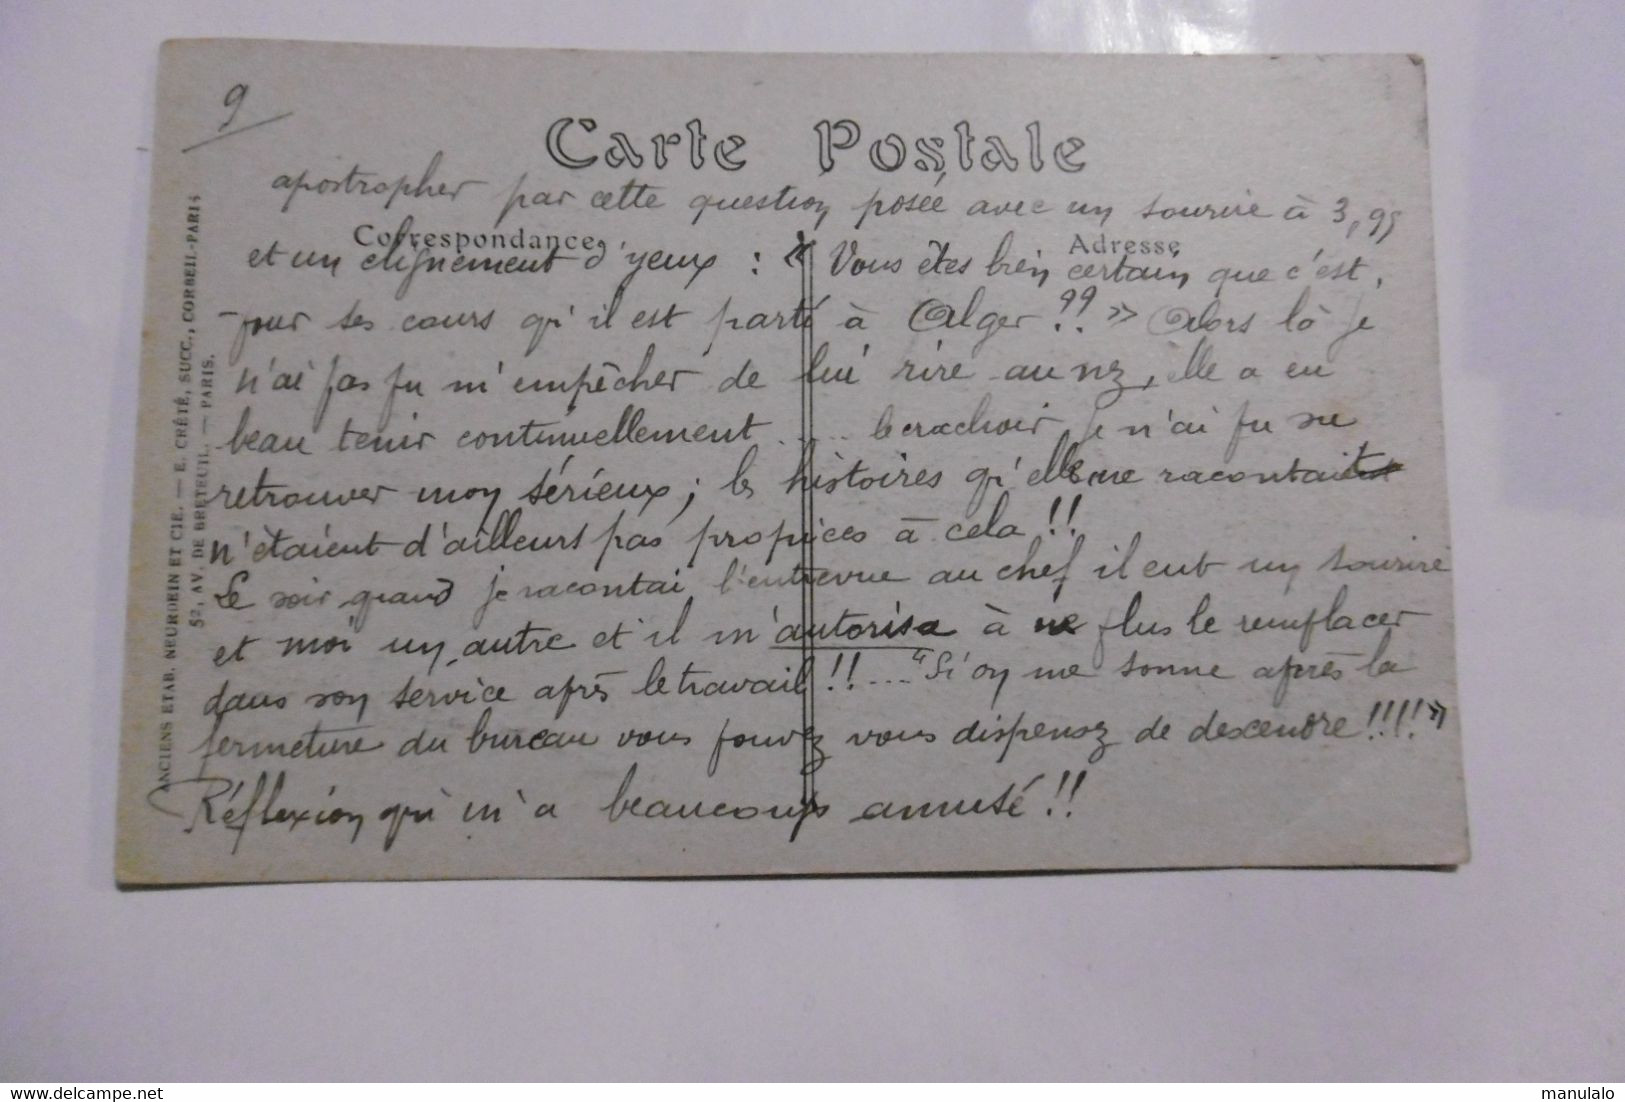 9
Carte Postale
apostropher par cette question posée avec un sourire à 3,95
Correspondance
Adresse
et un clignement d'yeux : « Vous êtes bien certain que c'est
pour ses cours qu'il est parti à Alger ?? » Alors là je
n'ai pas pu m'empêcher de lui rire au nez, elle a eu
beau tenir continuellement ..... le crachoir je n'ai pu
retrouver mon sérieux ; les histoires qu'elle me racontait
n'étaient d'ailleurs pas propices à cela !!
Le soir quand je racontai l'entrevue au chef il eut un sourire
et moi un autre et il m'autorisa à ne plus le remplacer
dans son service après le travail !! .... "Si on me sonne après la
fermeture du bureau vous pouvez vous dispensez de descendre !!!! »
Réflexion qui m'a beaucoup amusé !!
ANCIENS ETAB. NEURDEIN ET CIE. — E. CRÉTÉ, SUCC., CORBEIL-PARIS
52, AV. DE BRETEUIL. — PARIS.
https://www.delcampe.net
manulalo